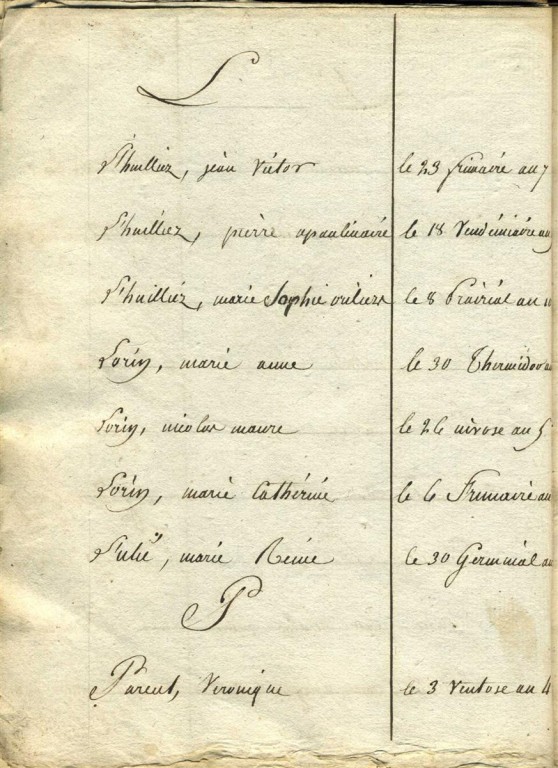 L
Lhuilliez, jean Victor le 23 frimaire an 7
Lhuilliez, pierre apaulinaire le 18 Vendémiaire an
Lhuilliez, marie Sophie le 8 Prairial an
Lorin, marie anne le 30 Thermidor an
Lorin, nicolas maure le 26 nivose an 5
Lorin, marie Cathérine le 6 Frimaire an
marie Reine le 30 Germinal an
P
Parent, Veronique le 3 Ventose an 4